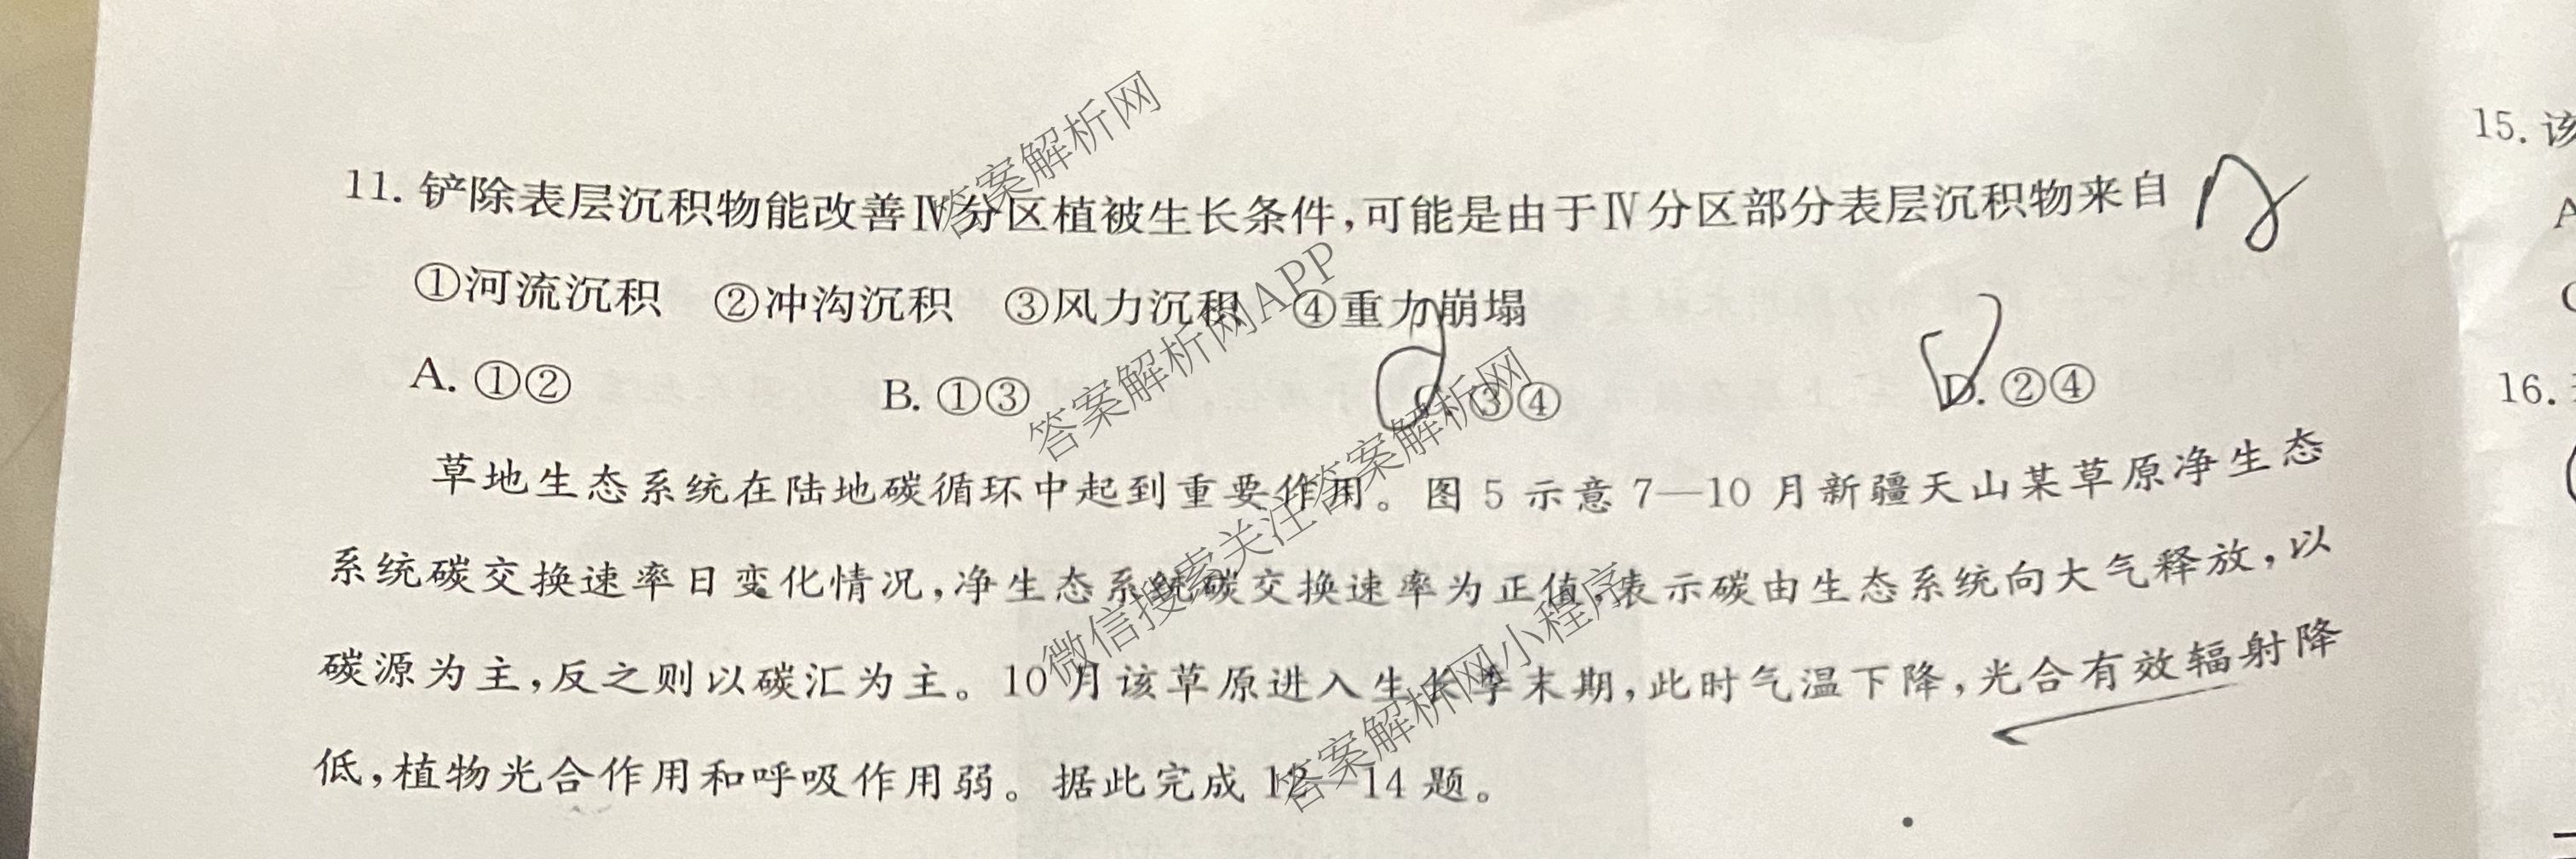 11. 铲除表层沉积物能改善Ⅳ分区植被生长条件,可能是由于Ⅳ分区部分表层沉积物来自
①河流沉积 ②冲沟沉积 ③风力沉积 ④重力崩塌
A. ①② B. ①③ C. ③④ D. ②④
草地生态系统在陆地碳循环中起到重要作用。图 5 示意 7—10 月新疆天山某草原净生态
系统碳交换速率日变化情况,净生态系统碳交换速率为正值,表示碳由生态系统向大气释放,以
碳源为主,反之则以碳汇为主。10 月该草原进入生长季末期,此时气温下降,光合有效辐射降
低,植物光合作用和呼吸作用弱。据此完成 12—14 题。
15. 该
A
C
16.
答案解析网
答案解析网APP
微信搜索关注 答案解析网
答案解析网小程序